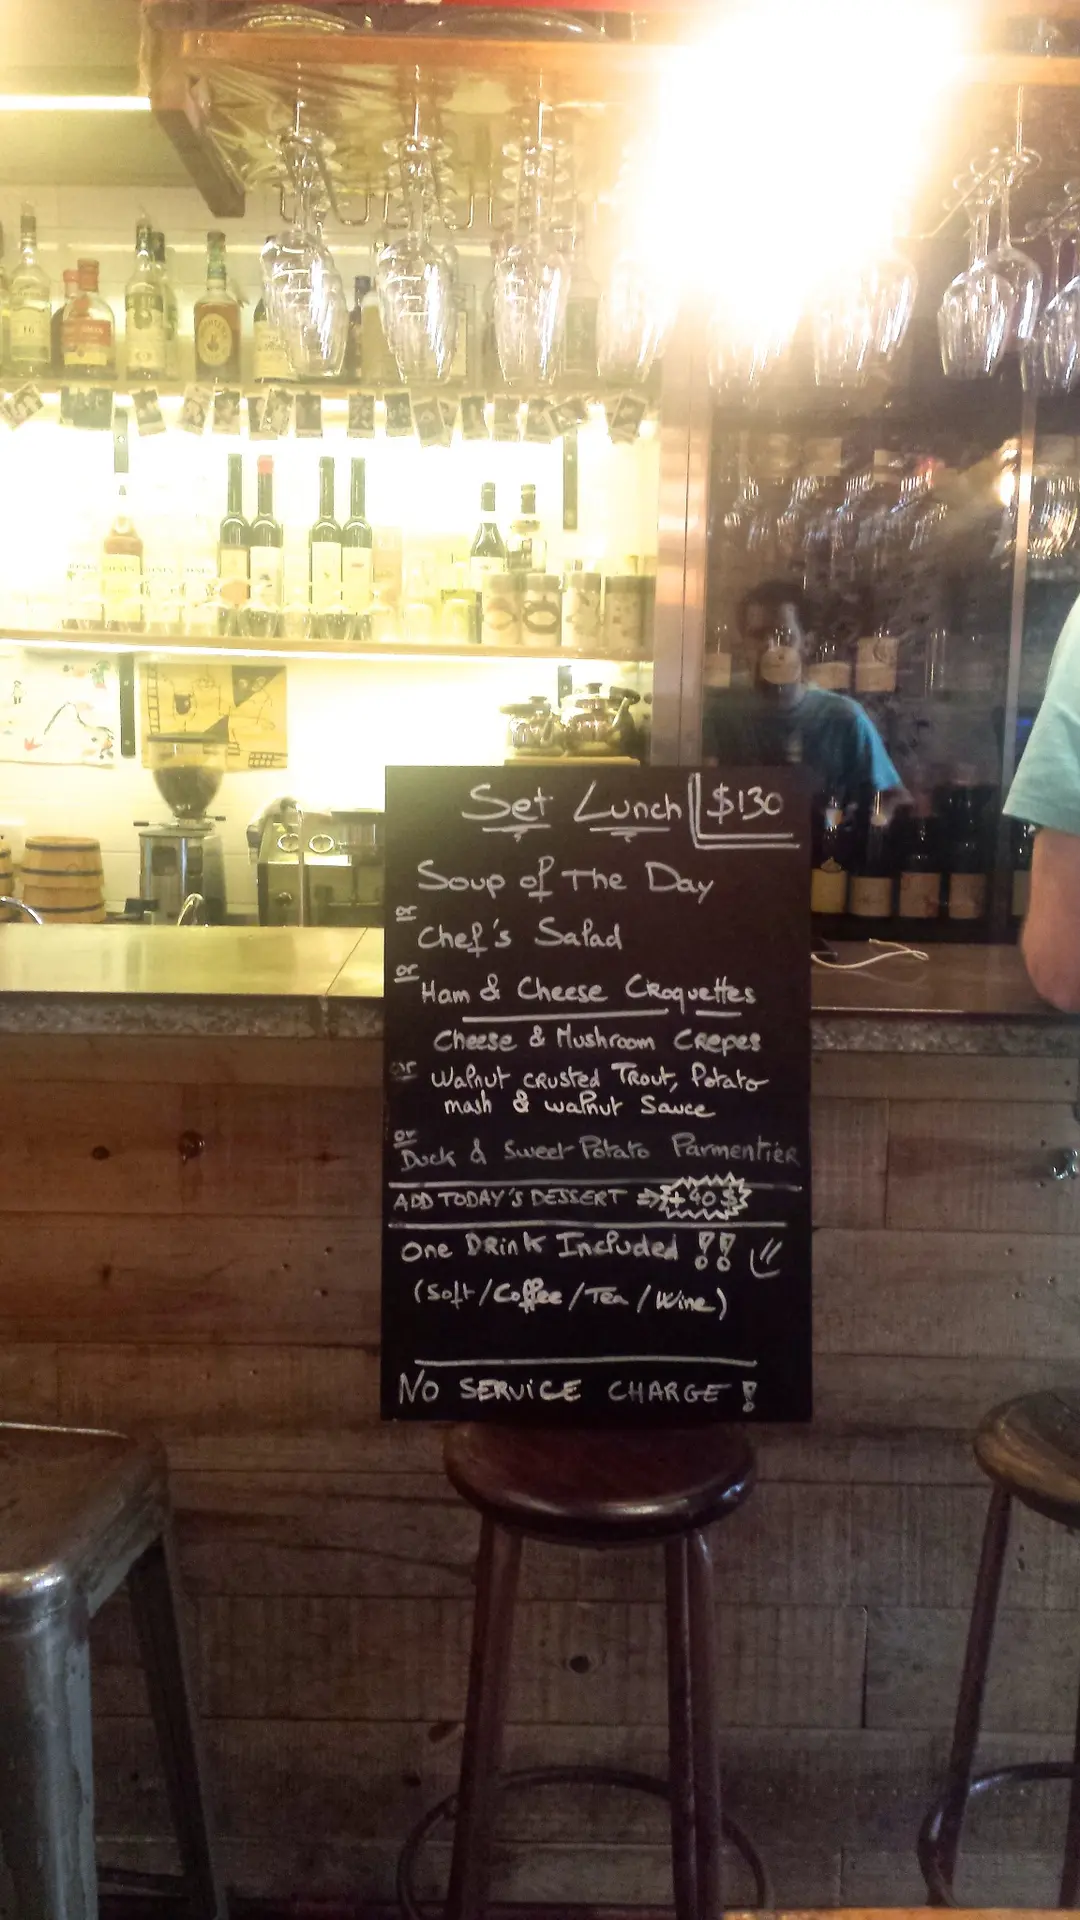 Set Lunch $130
Soup of The Day
or
Chef's Salad
or
Ham & Cheese Croquettes
Cheese & Mushroom Crepes
or
Walnut crusted Trout, Potato
mash & walnut Sauce
or
Duck & Sweet Potato Parmentier
ADD TODAY'S DESSERT + 40 $
One Drink Included !!
(Soft/Coffee/Tea/Wine)
NO SERVICE CHARGE !